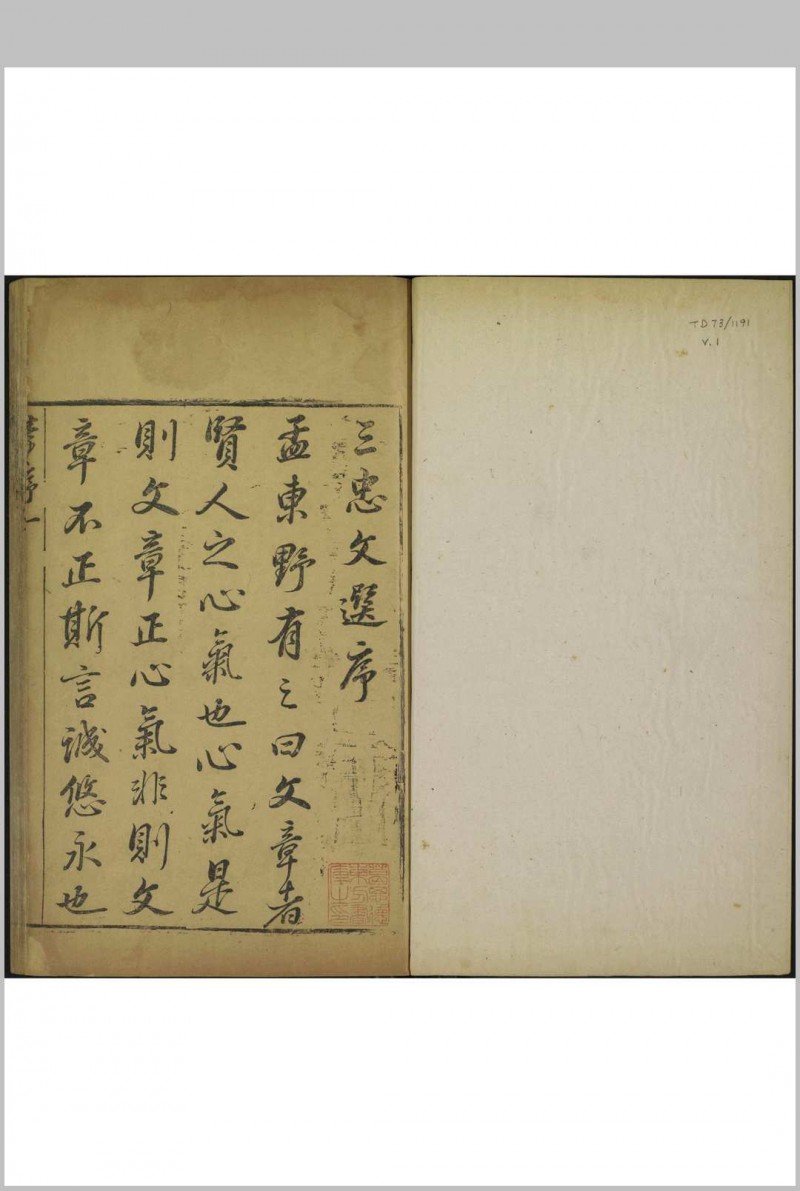 三忠文選序
孟東野有之曰文章者
賢人之心氣也心氣是
則文章正心氣非則文
章不正斯言誠悠永也
序一
TD73/1191
V.1